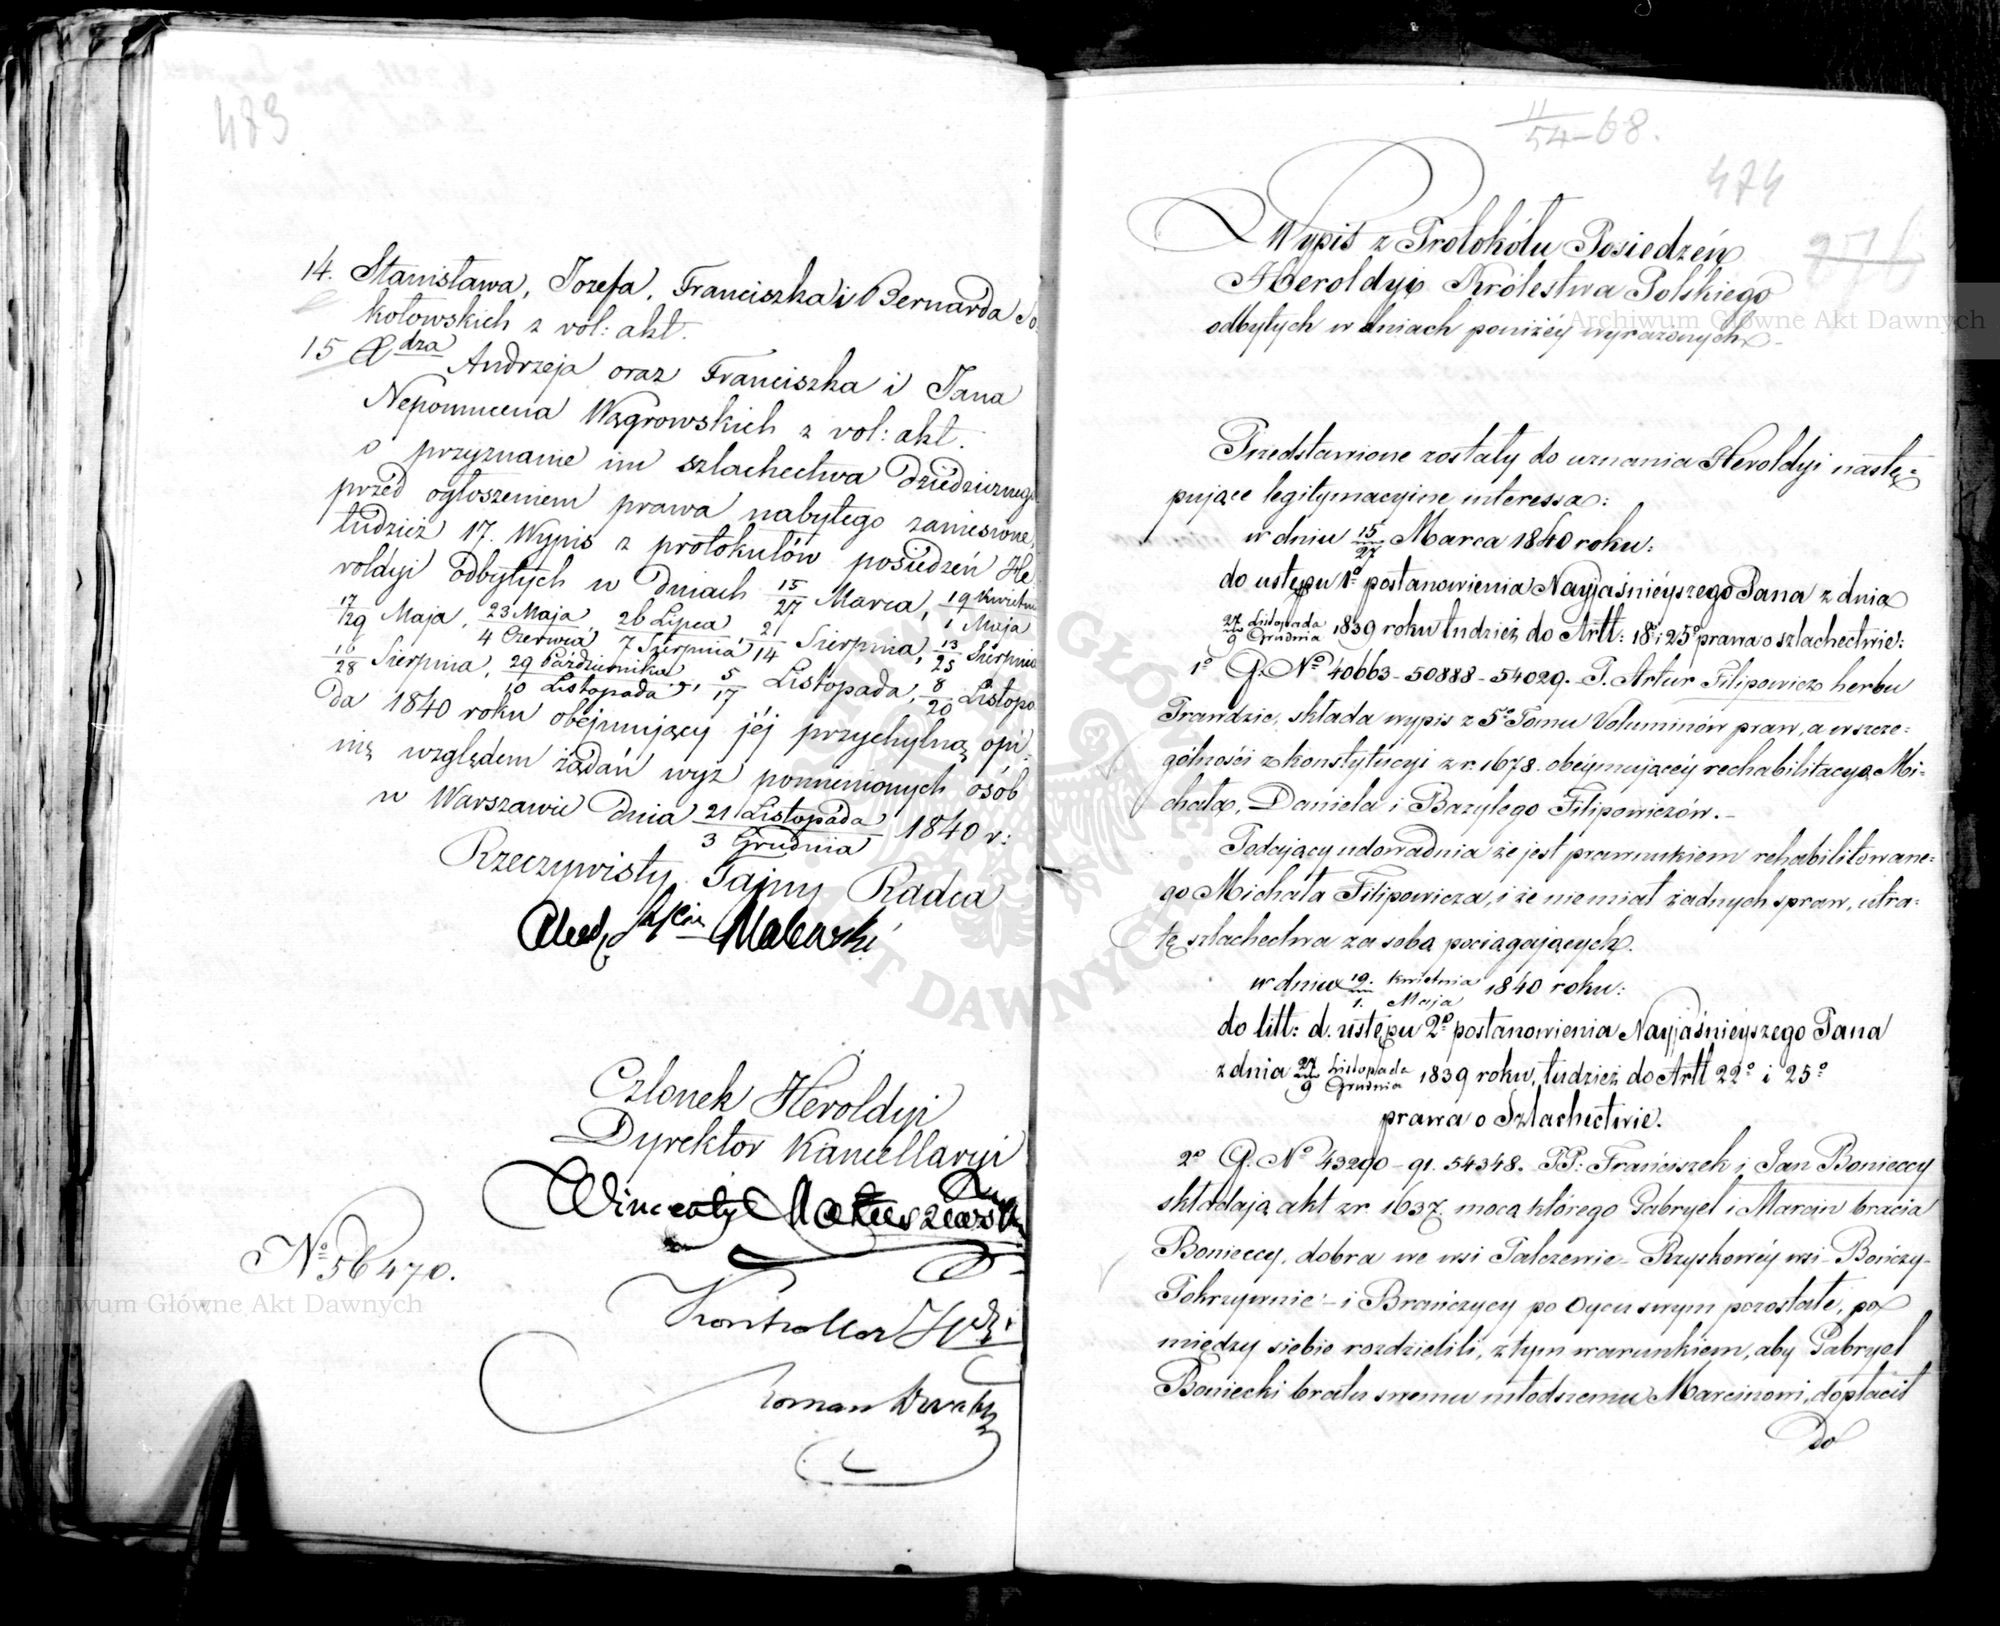 483
14. Stanisława, Jozefa, Franciszka i Bernarda So
kołowskich z vol: akt.
15 Xdza Andrzeja oraz Franciszka i Jana
Nepomucena Wągrowskich z vol: akt.
o przyznanie im szlachectwa dziedzicznego
przed ogłoszeniem prawa nabytego zaniesione,
tudzież 17. Wypis z protokułów posiedzeń He
roldyi odbytych w dniach 15/27 Marca, 19 Kwietnia/1 Maja
17/29 Maja, 23 Maja/4 Czerwca, 26 Lipca/7 Sierpnia, 2/14 Sierpnia, 13/25 Sierpnia
16/28 Sierpnia, 29 Października/10 Listopada, 5/17 Listopada, 8/20 Listopa
da 1840 roku obejmujący jéj przychylną opi
nię względem żądań wyż pomienionych osób
w Warszawie dnia 21 Listopada/3 Grudnia 1840 r:
Rzeczywisty Tajny Radca
Członek Heroldyi
Dyrektor Kancellaryi
Wincenty Matuszewski
No 56470.
Kontroller
Roman
11/54-68.
474
276
Wypis z Protokółu Posiedzeń
Heroldyi Królestwa Polskiego
odbytych w dniach poniżéy wyrażonych
Przedstawione zostały do uznania Heroldyi nastę=
pujące legitymacyine interessa:
w dniu 15/27 Marca 1840 roku:
do ustępu 1o postanowienia Nayjaśnieyszego Pana z dnia
27 Listopada/9 Grudnia 1839 roku tudzież do Artt: 18o i 25o prawa o szlachectwie:
1o G. No 40663-50888-54029. P. Artur Filipowicz herbu
Prawdzic, składa wypis z 5o Tomu Voluminów praw, a w szcze=
gólności z konstytucyi z r. 1678. obeymuiącéy rechabilitacyą Mi=
chała, Daniela i Bazylego Filipowiczów.-
Podający udowadnia że jest prawnukiem rehabilitowane=
go Michała Filipowicza, i że nie miał żadnych spraw, utra=
tę szlachectwa za sobą pociągających.
w dniu 19. Kwietnia/1. Maja 1840 roku:
do litt: d. ustępu 2o postanowienia Nayjaśnieyszego Pana
z dnia 27 Listopada/9 Grudnia 1839 roku, tudzież do Artt 22o i 25o
prawa o Szlachectwie.
2o G. No 43290-91. 54348. PP: Franciszek i Jan Bonieccy
składają akt z r. 1637. mocą którego Gabryel i Marcin bracia
Bonieccy, dobra we wsi Palczewie - Ryszkowéy wsi - Bończy-
Pokrzywnie - i Brańczycy po Oycu swym pozostałe, po
między siebie rozdzielili, z tym warunkiem, aby Gabryel
Boniecki bratu swemu młodszemu Marcinowi, dopłacił
do
Archiwum Główne Akt Dawnych
Archiwum Główne Akt Dawnych